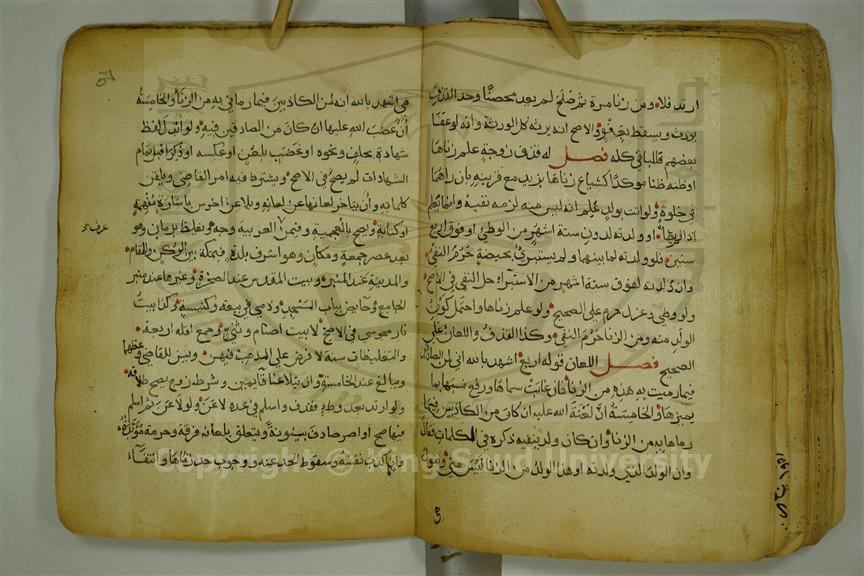 ارتد فلا ومن زنا مرة ثم صلح لم يعد محصنا وحد القذف
يورث ويسقط بعفو والاصح انه يرثه كل الورثة وانه لو عفا
بعضهم فللباقي كله فصل له قذف زوجة علم زناها
او ظنه ظنا موكدا كشياع زناها بزيد مع قرينة بان راهما
في خلوة ولو اتت بولد علم انه ليس منه لزمه نفيه وانما يعلم
اذا لم يطأ او ولدته لدون ستة اشهر من الوطئ او فوق اربع
سنين فلو ولدته لما بينهما ولم يستبرئ بحيضة حرم النفي
وان ولدته لفوق ستة اشهر من الاستبراء حل النفي في الاصح
ولو وطئ وعزل حرم على الصحيح ولو علم زناها واحتمل كون
الولد منه ومن الزنا حرم النفي وكذا القذف واللعان على
الصحيح فصل اللعان قوله اربع اشهد بالله اني لمن الصادقين
فيما رميت به هذه من الزنا فان غابت سماها ورفع نسبها بما
يميزها والخامسة ان لعنة الله عليه ان كان من الكاذبين فيما
رماها به من الزنا وان كان ولد ينفيه ذكره في الكلمات فقال
وان الولد الذي ولدته او هذا الولد من الزنا ليس مني وتقول
هي اشهد بالله انه لمن الكاذبين فيما رماني به من الزنا والخامسة
ان غضب الله عليها ان كان من الصادقين فيه ولو ابدل لفظ
شهادة بحلف ونحوه او غضب بلعن او عكسه او ذكرا قبل تمام
الشهادات لم يصح في الاصح ويشترط فيه امر القاضي ويلقن
كلماته وان يتاخر لعانها عن لعانه ويلاعن اخرس باشارة مفهمة
او كتابة ويصح بالعجمية وفيمن عرف العربية وجه ويغلظ بزمان وهو
بعد عصر جمعة ومكان وهو اشرف بلده فبمكة بين الركن والمقام
والمدينة عند المنبر وبيت المقدس عند الصخرة وغيرها عند منبر
الجامع وحايض بباب المسجد وذمي في بيعة وكنيسة وكذا بيت
نار مجوسي في الاصح لا بيت اصنام وثني وجمع اقله اربعة
والتغليظات سنة لا فرض على المذهب فيهن ويسن للقاضي وعظهما
ويبالغ عند الخامسة وان يتلاعنا قايمين وشرطه زوج يصح طلاقه
ولو ارتد بعد وطء فقذف واسلم في عدة لاعن ولو لاعن ثم اسلم
فيها صح او اصر صادف بينونة ويتعلق بلعانه فرقة وحرمة مؤبدة
وان كذب نفسه وسقوط الحد عنه ووجوب حد زناها وانتفاء
Copyright © King Saud University